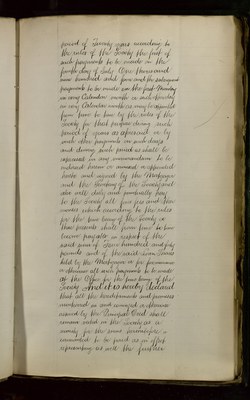 period of Twenty years according to
the rules of the Society the first of
such payments to be made on the
day of July One thousand
nine hundred and five and the subsequent
payments to be made on the first Monday
in every Calendar month or such other day
in every Calendar month as may be appointed
from time to time by the rules of the
Society for that purpose during such
period of years as aforesaid or by
such other payments on such days
and during such period as shall be
expressed in any memorandum to be
endorsed hereon or annexed or appended
hereto and signed by the Mortgagor
and the Secretary of the Society and
also will duly and punctually pay
to the Society all fines fees and other
monies which according to the rules
for the time being of the Society in
that behalf shall from time to time
become payable in respect of the
said sum of Two hundred and fifty
pounds and of the said Shares
held by the Mortgagor in the
all such payments to be made
at the Office for the time being of the
Society And it is hereby Declared
that all the hereditaments and premises
comprised in and assured or otherwise
assured by the Principal Deed shall
remain vested in the Society as a
security for the same
intended to be paid as in effect
as well the further